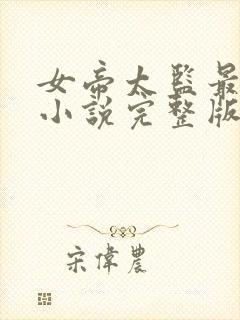 女帝太監最
小說完整版
宋偉農